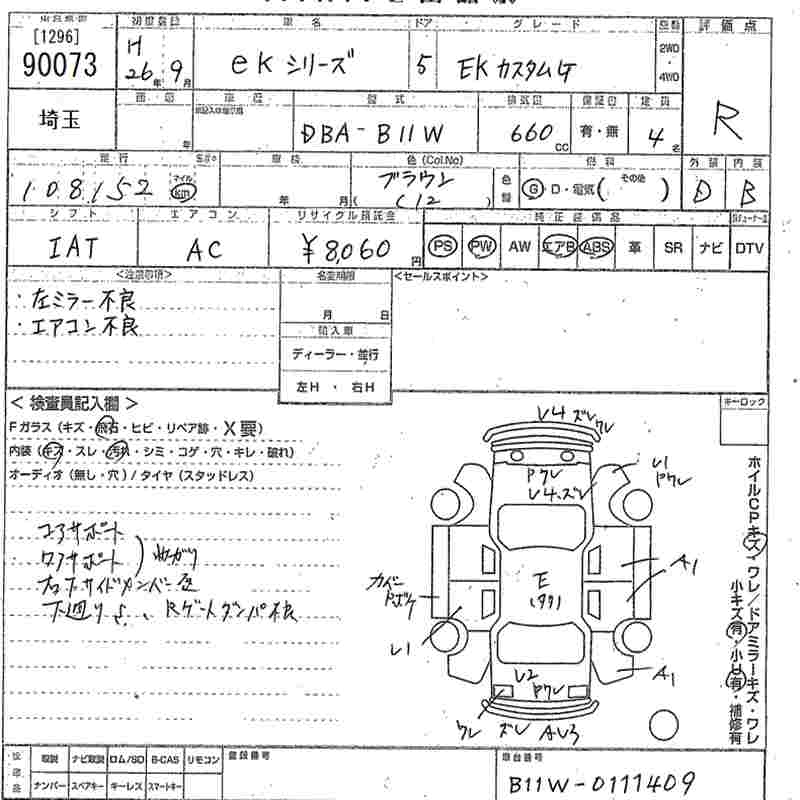 [1296]
90073
埼玉
初度登録
H 26年 9月
車名
eK シリーズ
ドア
5
グレード
EK カスタムG
2WD
4WD
評価点
R
型式
DBA-B11W
排気量
660 cc
有・無
定員
4名
走行
108152
マイル
km
車検
年 月
色 (Col.No)
ブラウン
( C12 )
燃料
G・D・電気 ( その他 )
外装
D
内装
B
シフト
IAT
エアコン
AC
リサイクル預託金
¥8,060 円
純正装備品
PS PW AW エアB ABS 革 SR ナビ DTV
<注意事項>
・左ミラー不良
・エアコン不良
名変期限
月 日
輸入車
ディーラー・並行
左H ・ 右H
<セールスポイント>
< 検査員記入欄 >
Fガラス (キズ・飛石・ヒビ・リペア跡・X要)
内装 (キズ・スレ・汚れ・シミ・コゲ・穴・キレ・破れ)
オーディオ (無し・穴) / タイヤ (スタッドレス)
コアサポート
ロアサポート
曲ガリ
下廻りS、Rゲートダンパ不良
キーロック
ホイルCPキズ・ワレ/ドアミラーキズ・ワレ
小キズ有・小U有・補修有
U4 ズレ ワレ
Pワレ
U4.ズレ
U1
Pワレ
A1
E
(99)
カバー
U1
U2
Pワレ
A1
ワレ
ズレ
AU3
取説 ナビ取説 ロム/SD B-CAS リモコン
ナンバー スペアキー キーレス スマートキー
登録番号
車台番号
B11W-0111409